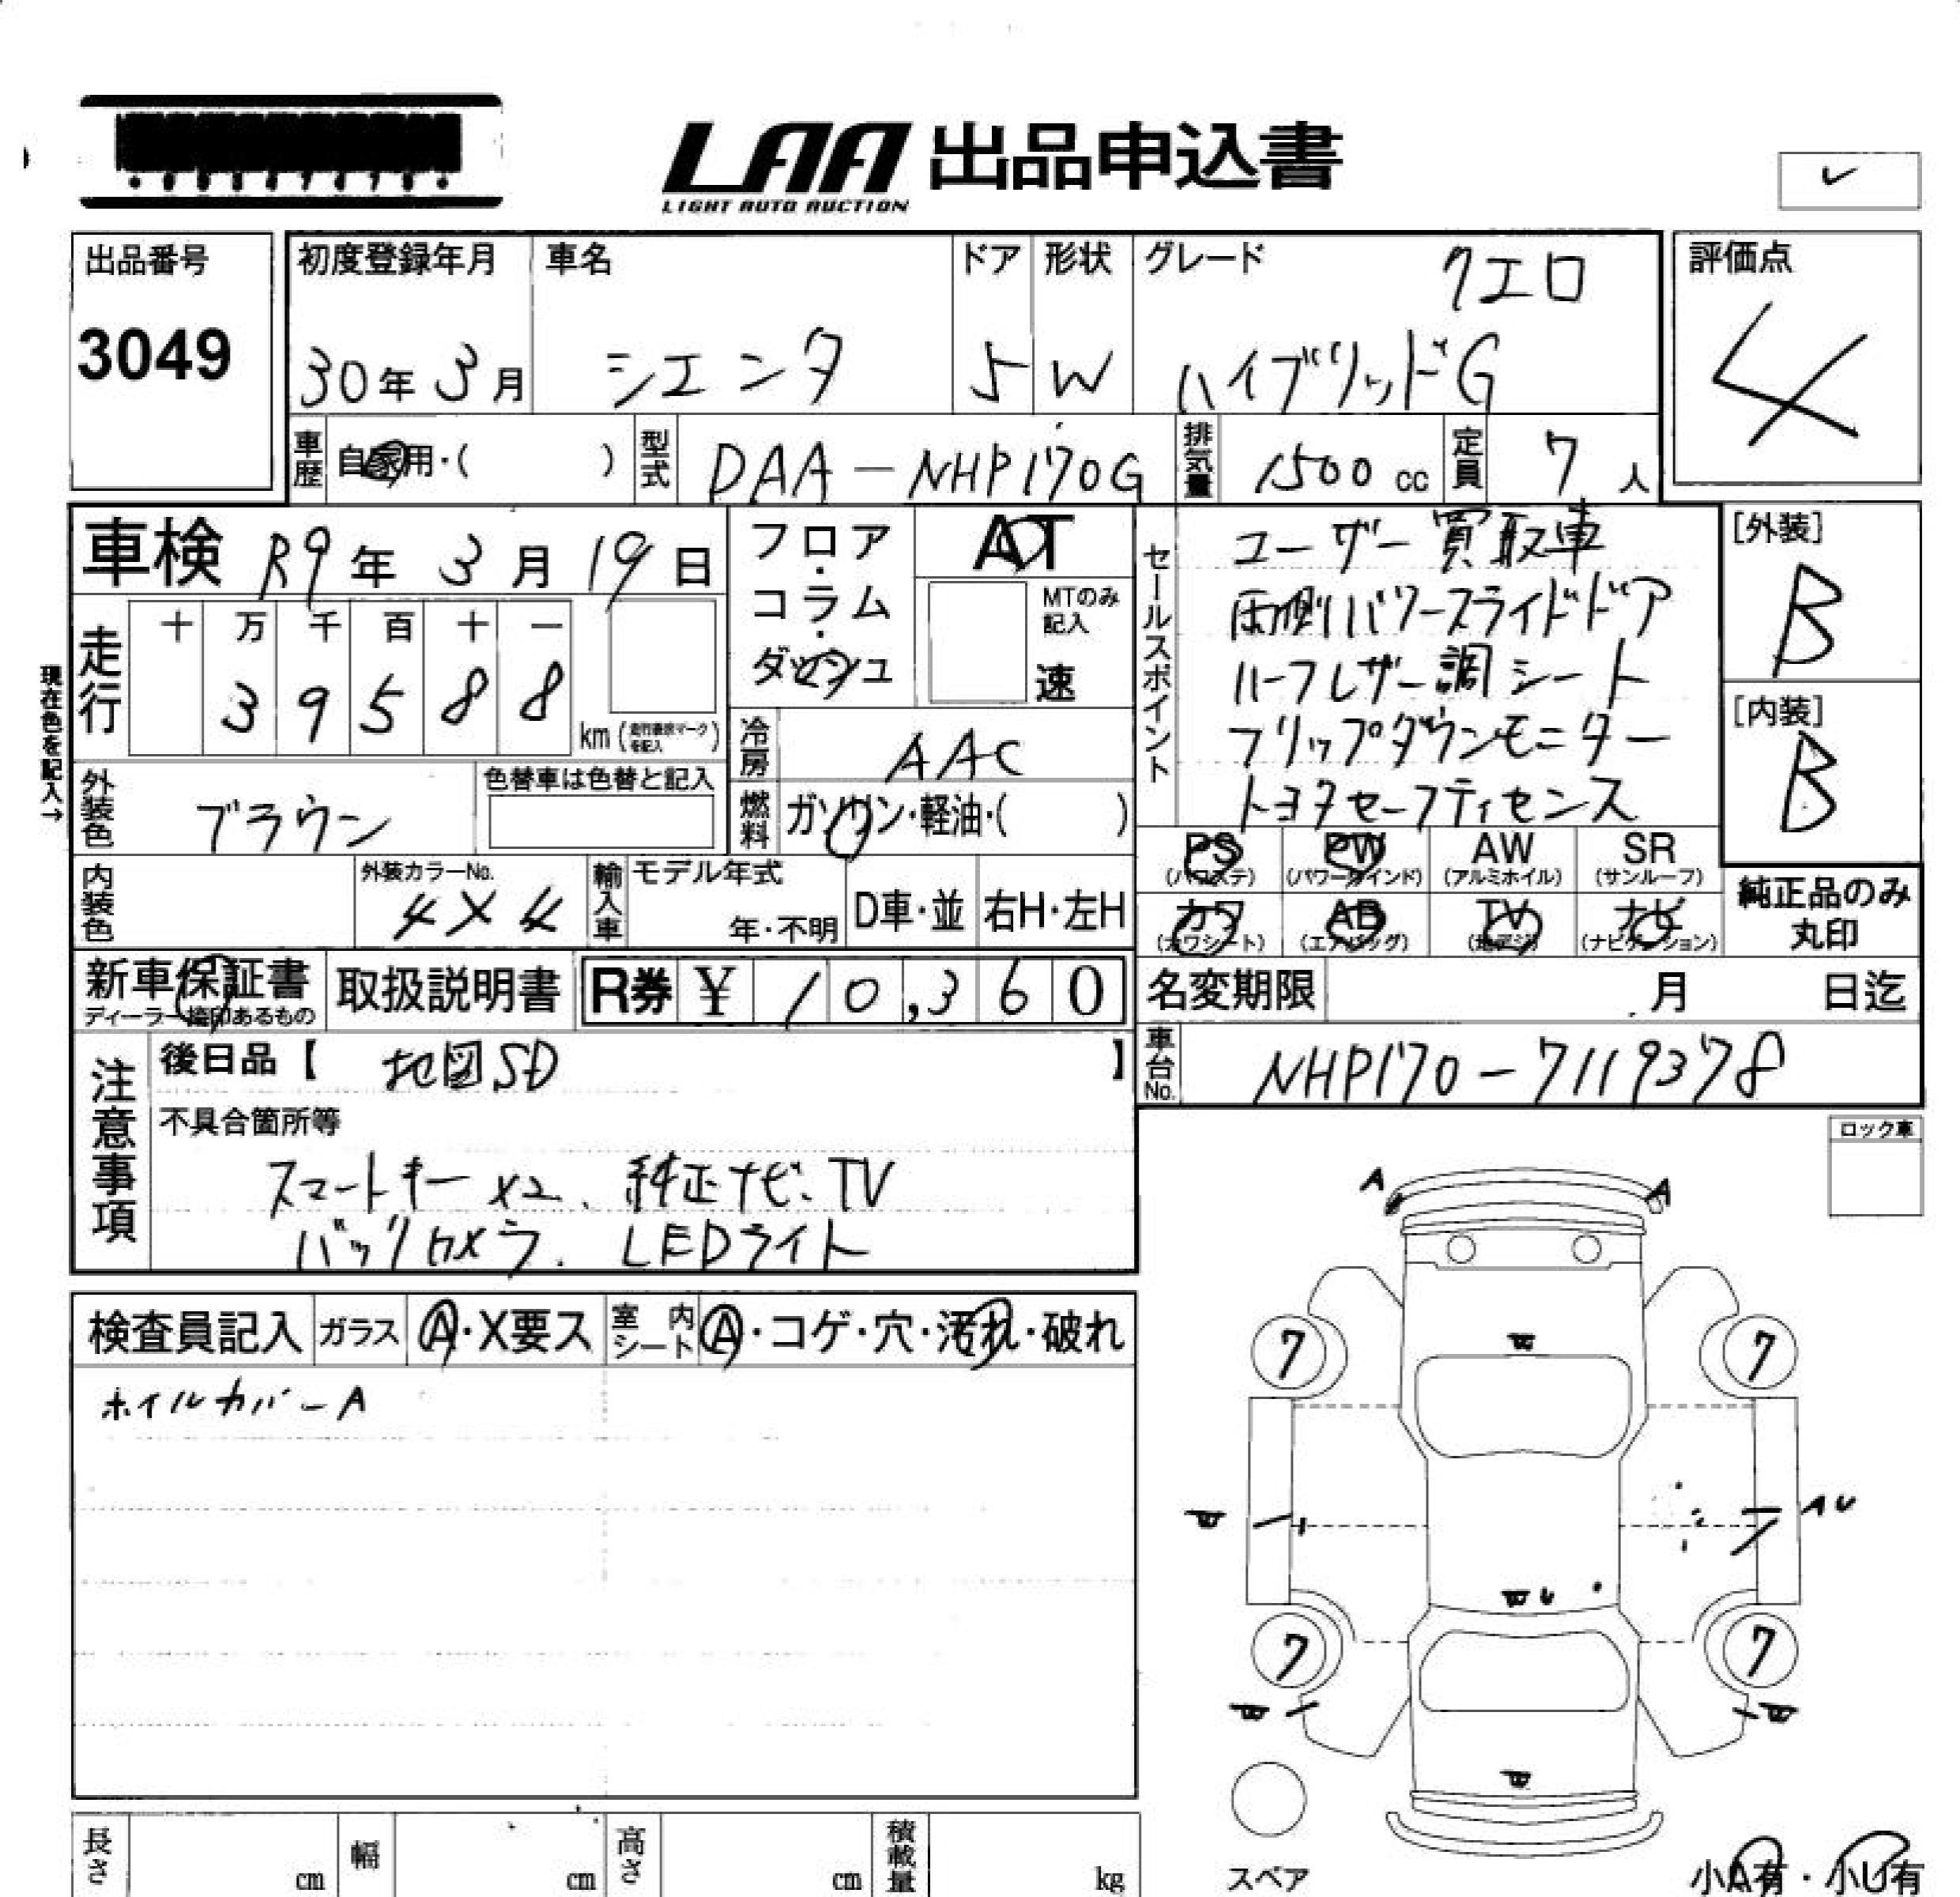 LAA 出品申込書
LIGHT AUTO AUCTION
出品番号
3049
初度登録年月
30年 3月
車名
シエンタ
ドア
5
形状
W
グレード
クエロ
ハイブリッドG
評価点
4
車歴
自家用・( )
型式
DAA-NHP170G
排気量
1500 cc
定員
7 人
車検 R9年 3月 19日
現在色を記入→
走行
十 万 千 百 十 一
3 9 5 8 8
km (走行距離マークを記入)
フロア・コラム・ダッシュ
AT
MTのみ記入
速
冷房
AAC
燃料
ガソリン・軽油・( )
外装色
ブラウン
色替車は色替と記入
内装色
外装カラーNo.
4X4
輸入車
モデル年式
年・不明
D車・並
右H・左H
セールスポイント
ユーザー買取車
両側パワースライドドア
ハーフレザー調シート
フリップダウンモニター
トヨタセーフティセンス
[外装]
B
[内装]
B
PS (パワステ)
PW (パワーウインド)
AW (アルミホイル)
SR (サンルーフ)
カワ (カワシート)
AB (エアバッグ)
TV (地デジ)
ナビ (ナビゲーション)
純正品のみ
丸印
新車保証書
ディーラー捺印あるもの
取扱説明書
R券 ¥ 10,360
名変期限 月 日迄
車台No.
NHP170-7119378
注意事項
後日品【 地図SD 】
不具合箇所等
スマートキーx2、純正ナビ、TV
バックカメラ、LEDライト
ロック車
検査員記入
ガラス
A・X要ス
室内シート
A・コゲ・穴・汚れ・破れ
ホイルカバーA
A
A
7
7
AU
7
7
スペア
小A有・小U有
長さ cm
幅 cm
高さ cm
積載量 kg